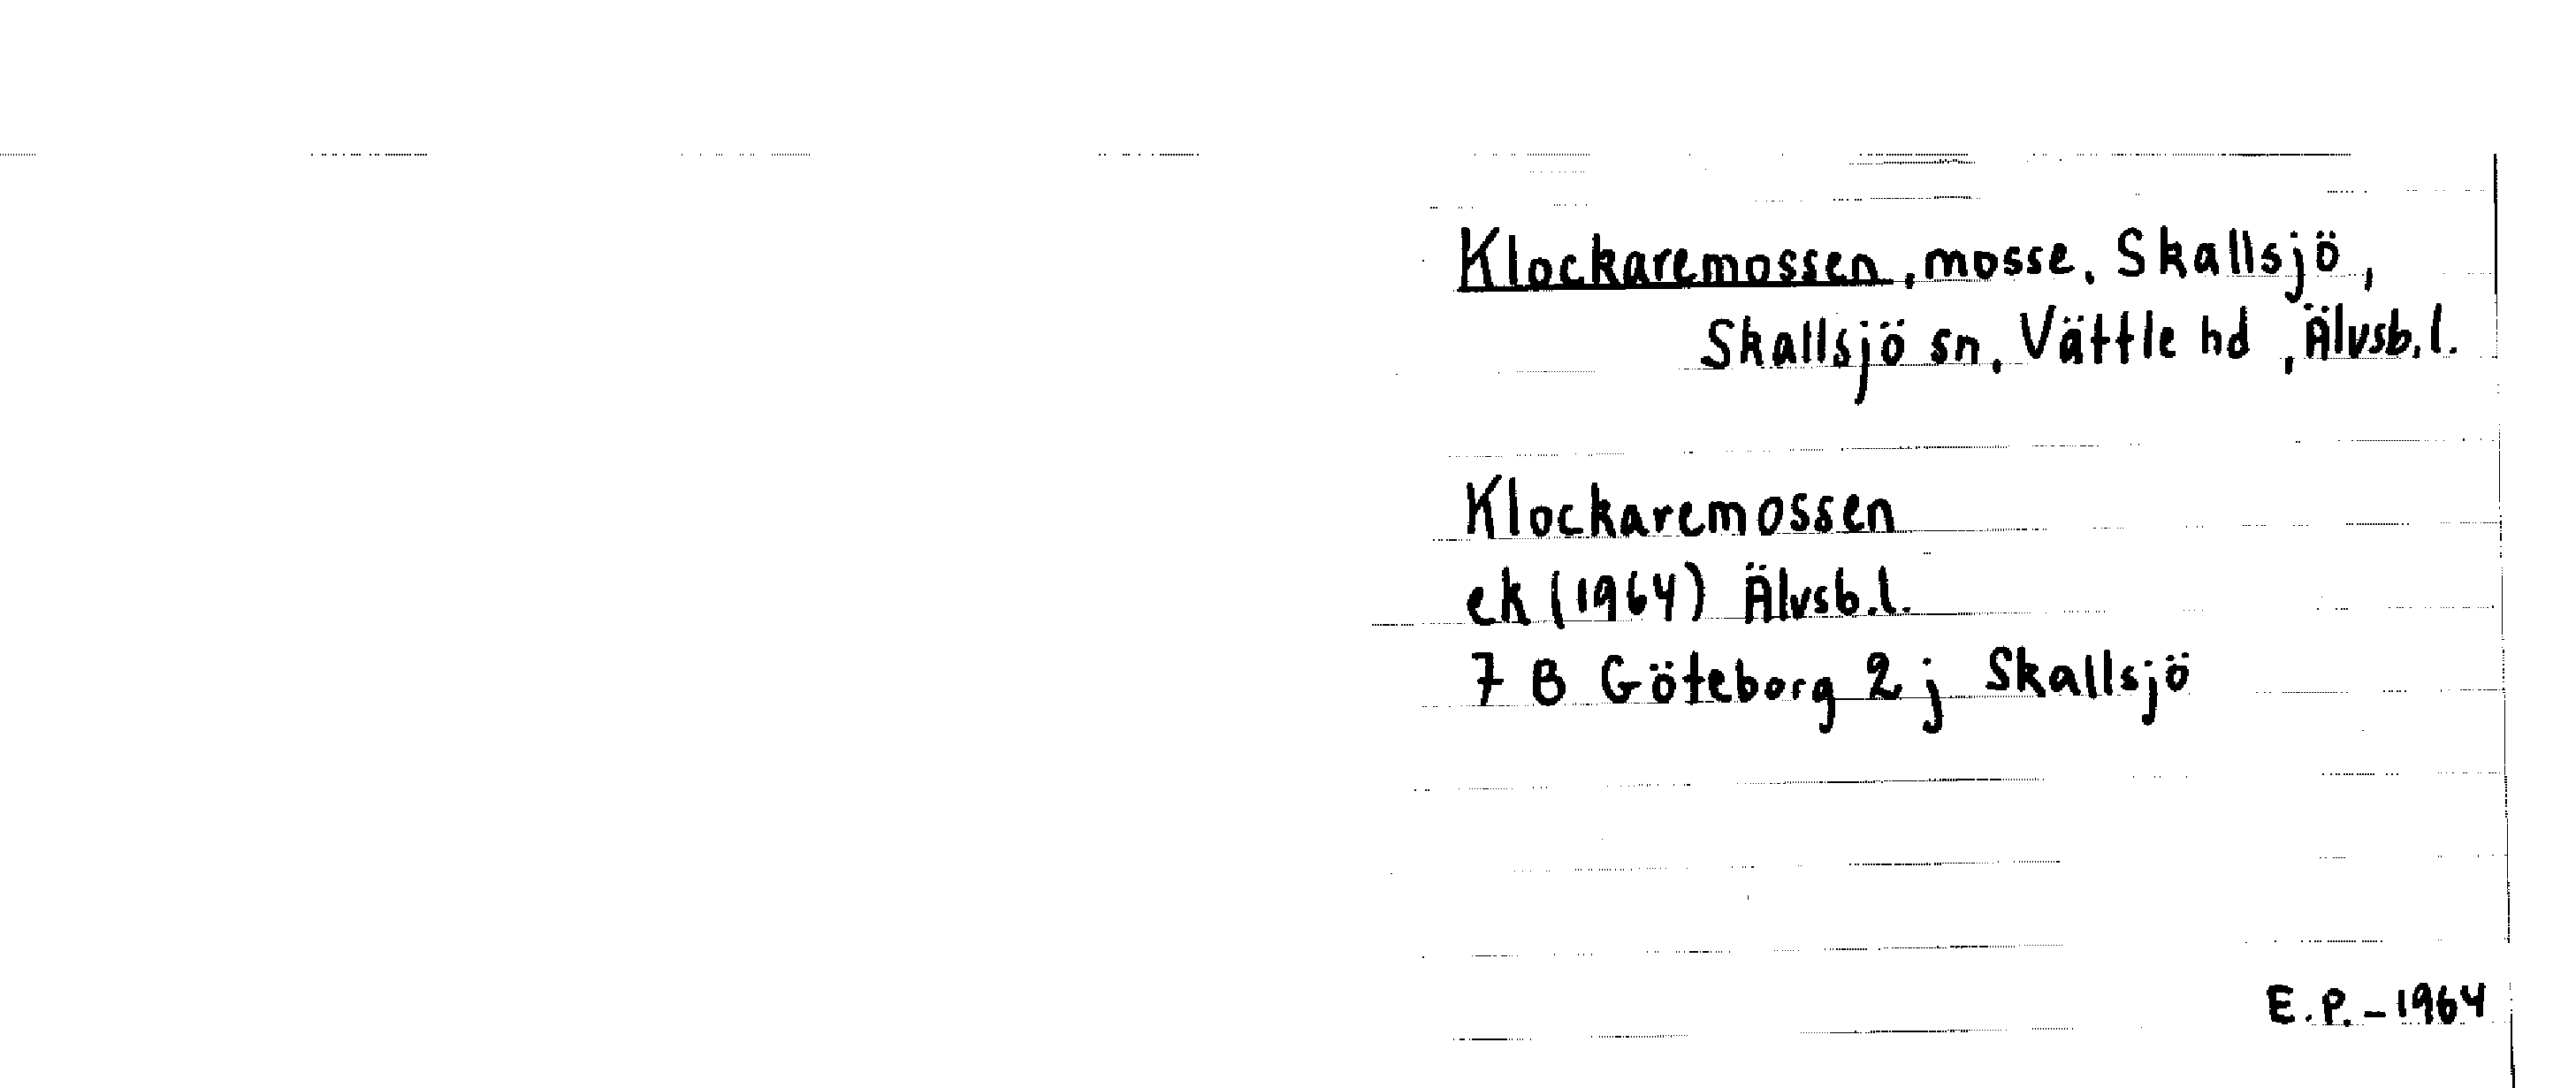 Klockaremossen, mosse, Skallsjö,
Skallsjö sn, Vättle hd, Älvsb.l.
Klockaremossen
ek (1964) Älvsb.l.
7 B Göteborg 2 j Skallsjö
E.P. - 1964